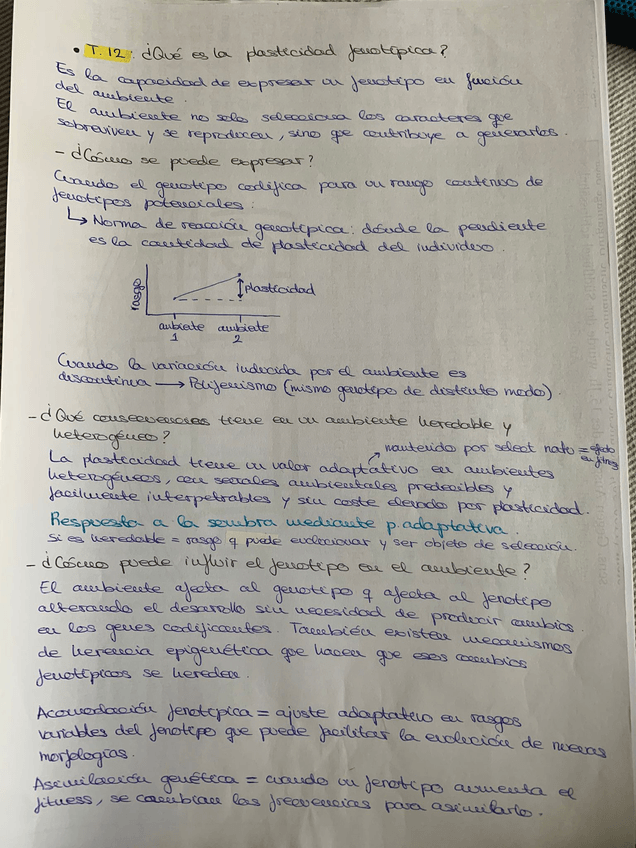 • T.12: ¿Qué es la plasticidad fenotípica?
Es la capacidad de expresar un fenotipo en función
del ambiente.
El ambiente no solo selecciona los caracteres que
sobreviven y se reproducen, sino que contribuye a generarlos.
- ¿Cómo se puede expresar?
Cuando el genotipo codifica para un rango continuo de
fenotipos potenciales:
↳ Norma de reacción genotípica: dónde la pendiente
es la cantidad de plasticidad del individuo.
rasgo
plasticidad
ambiente 1
ambiente 2
Cuando la variación inducida por el ambiente es
discontinua → Polifenismo (mismo genotipo de distinto modo).
- ¿Qué consecuencias tiene en un ambiente heredable y
heterogéneo?
mantenido por select nat = efecto en fitness
La plasticidad tiene un valor adaptativo en ambientes
heterogéneos, con señales ambientales predecibles y
facilmente interpretables y sin coste elevado por plasticidad.
Respuesta a la sombra mediante p. adaptativa.
Si es heredable = rasgo q puede evolucionar y ser objeto de selección.
- ¿Cómo puede influir el fenotipo en el ambiente?
El ambiente afecta al genotipo q afecta al fenotipo
alterando el desarrollo sin necesidad de producir cambios
en los genes codificantes. También existen mecanismos
de herencia epigenética que hacen que esos cambios
fenotípicos se hereden.
Acomodación fenotípica = ajuste adaptativo en rasgos
variables del fenotipo que puede facilitar la evolución de nuevas
morfologías.
Asimilación genética = cuando un fenotipo aumenta el
fitness, se cambian las frecuencias para asimilarlo.